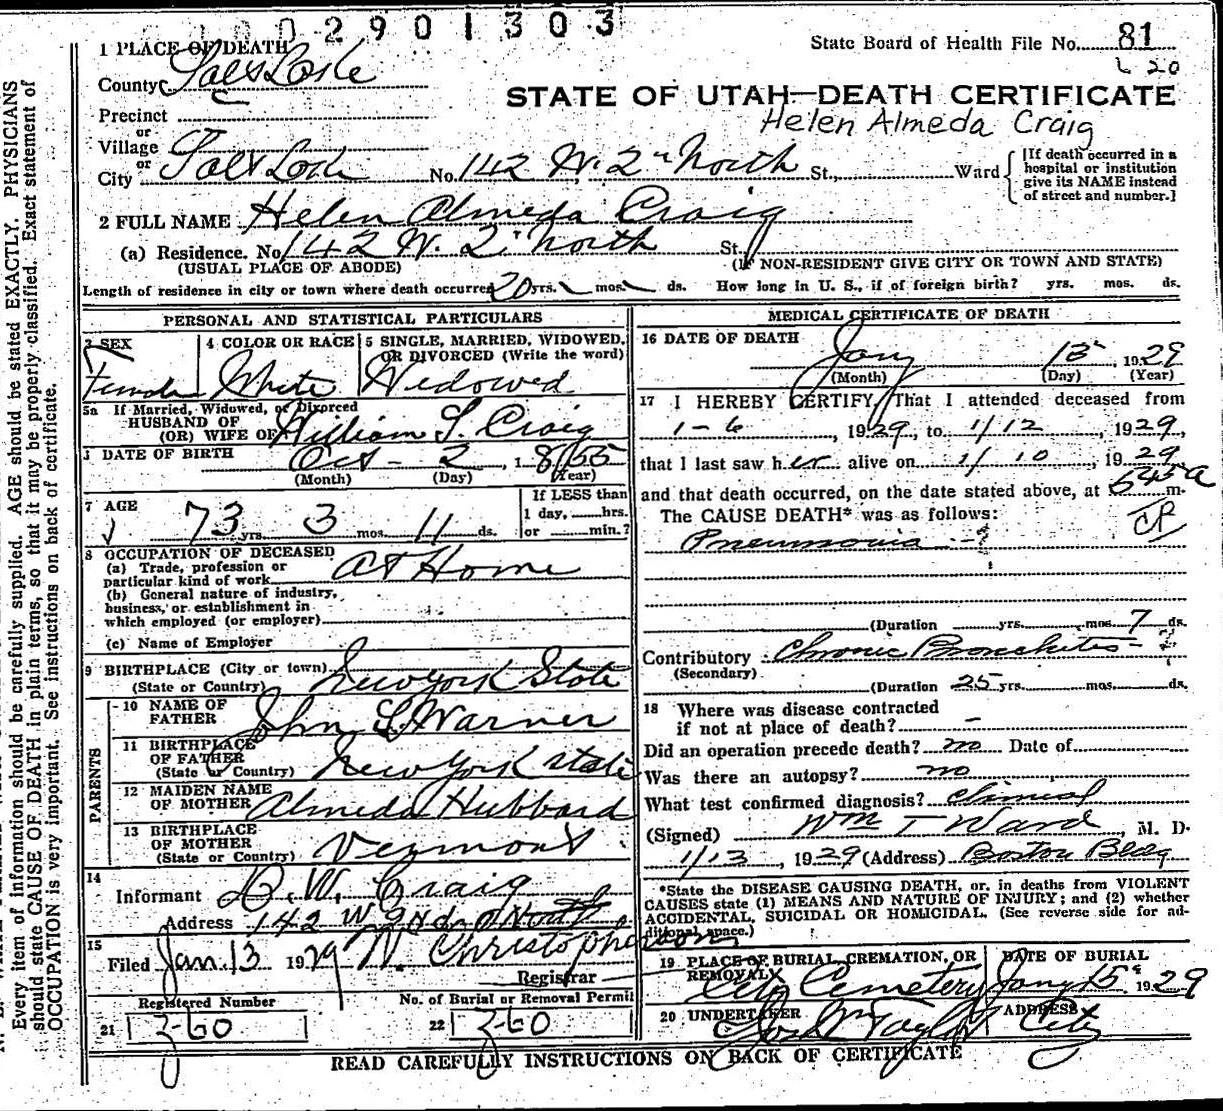 002901303
1 PLACE OF DEATH
State Board of Health File No. 81
20
County Salt Lake
STATE OF UTAH—DEATH CERTIFICATE
Helen Almeda Craig
Precinct
or
Village
or
City Salt Lake No. 142 W. 2nd North St., Ward
[If death occurred in a
hospital or institution
give its NAME instead
of street and number.]
2 FULL NAME Helen Almeda Craig
(a) Residence. No. 142 W. 2nd North St.
(USUAL PLACE OF ABODE) (IF NON-RESIDENT GIVE CITY OR TOWN AND STATE)
Length of residence in city or town where death occurred 20 yrs. mos. ds. How long in U. S., if of foreign birth? yrs. mos. ds.
PERSONAL AND STATISTICAL PARTICULARS
3 SEX
Female
4 COLOR OR RACE
White
5 SINGLE, MARRIED, WIDOWED,
OR DIVORCED (Write the word)
Widowed
5a If Married, Widowed, or Divorced
HUSBAND OF
(OR) WIFE OF William S. Craig
DATE OF BIRTH Oct - 2, 1855
(Month) (Day) (Year)
7 AGE
73 yrs. 3 mos. 11 ds.
If LESS than
1 day, hrs.
or min.?
8 OCCUPATION OF DECEASED
(a) Trade, profession or
particular kind of work At Home
(b) General nature of industry,
business, or establishment in
which employed (or employer)
(c) Name of Employer
9 BIRTHPLACE (City or town)
(State or Country) New York State
PARENTS
10 NAME OF
FATHER John L. Warner
11 BIRTHPLACE
OF FATHER
(State or Country) New York State
12 MAIDEN NAME
OF MOTHER Almeda Hubbard
13 BIRTHPLACE
OF MOTHER
(State or Country) Vermont
14
Informant W. Craig
Address 142 W 2nd North
15
Filed Jan. 13 1929 Christopherson
Registrar
Registered Number
21 260
No. of Burial or Removal Permit
22 260
MEDICAL CERTIFICATE OF DEATH
16 DATE OF DEATH
Jany 13 1929
(Month) (Day) (Year)
17 I HEREBY CERTIFY, That I attended deceased from
1-6, 1929, to 1/12, 1929,
that I last saw her alive on 1/10, 1929
and that death occurred, on the date stated above, at 545a m.
The CAUSE DEATH* was as follows:
Pneumonia
(Duration yrs. mos. 7 ds.
Contributory Chronic Bronchitis
(Secondary)
(Duration 25 yrs. mos. ds.
18 Where was disease contracted
if not at place of death? -
Did an operation precede death? no Date of
Was there an autopsy? no
What test confirmed diagnosis? Clinical
(Signed) Wm T Ward, M. D.
1/13, 1929 (Address) Boston Bldg
*State the DISEASE CAUSING DEATH, or, in deaths from VIOLENT
CAUSES state (1) MEANS AND NATURE OF INJURY; and (2) whether
ACCIDENTAL, SUICIDAL OR HOMICIDAL. (See reverse side for ad-
ditional space.)
19 PLACE OF BURIAL, CREMATION, OR
REMOVAL
City Cemetery
DATE OF BURIAL
Jany 15 1929
20 UNDERTAKER
Taylor
ADDRESS
City
READ CAREFULLY INSTRUCTIONS ON BACK OF CERTIFICATE
Every item of information should be carefully supplied. AGE should be stated EXACTLY. PHYSICIANS
should state CAUSE OF DEATH in plain terms, so that it may be properly classified. Exact statement of
OCCUPATION is very important. See instructions on back of certificate.